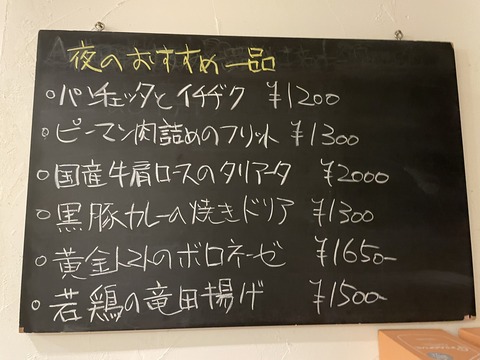 夜のおすすめ一品
○パンチェッタとイチヂク ¥1200
○ピーマン肉詰めのフリット ¥1300
○国産牛肩ロースのタリアータ ¥2000
○黒豚カレーの焼きドリア ¥1300
○黄金トマトのボロネーゼ ¥1650-
○若鶏の竜田揚げ ¥1500-